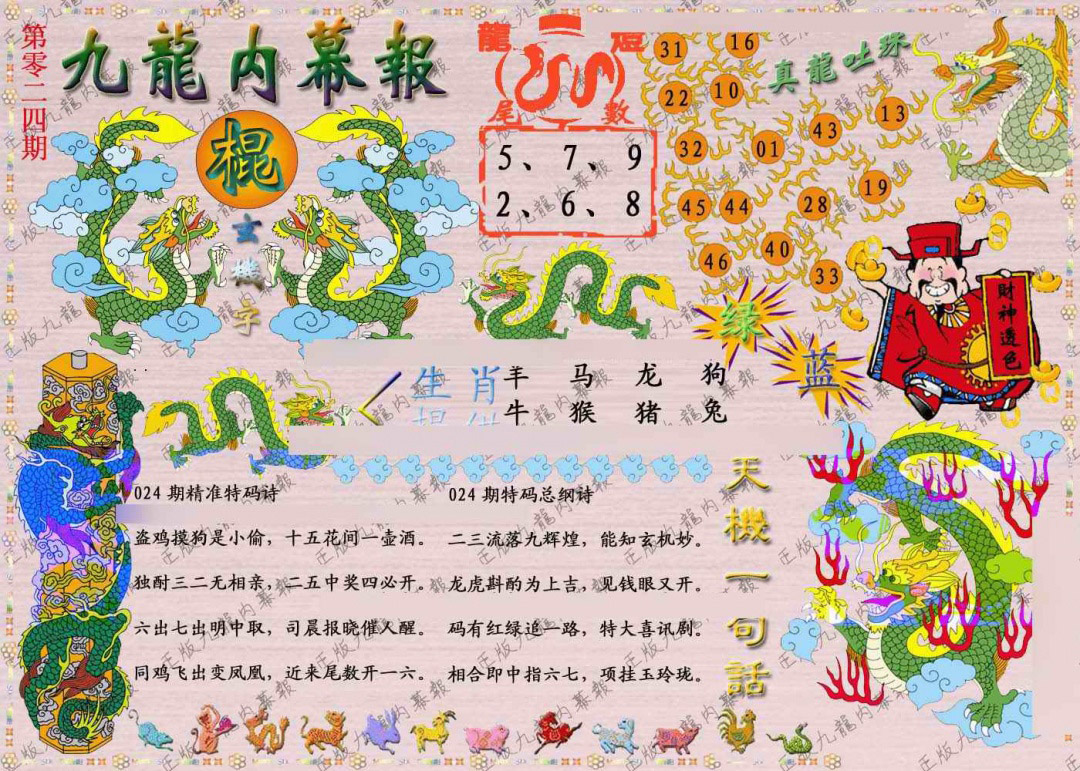 第零二四期
九龍内幕報
棍
玄機字
龍燈
尾數
5、7、9
2、6、8
真龍吐珠
31
16
22
10
13
43
32
01
19
45
44
28
40
46
33
绿
蓝
財神透色
生肖
羊 马 龙 狗
牛 猴 猪 兔
024 期精准特码诗
盗鸡摸狗是小偷，十五花间一壶酒。
独酎三二无相亲，二五中奖四必开。
六出七出明中取，司晨报晓催人醒。
同鸡飞出变凤凰，近来尾数开一六。
024 期特码总纲诗
二三流落九辉煌，能知玄机妙。
龙虎斟酌为上吉，见钱眼又开。
码有红绿追一路，特大喜讯剧。
相合即中指六七，项挂玉玲珑。
天機一句話
正版九龍内幕報